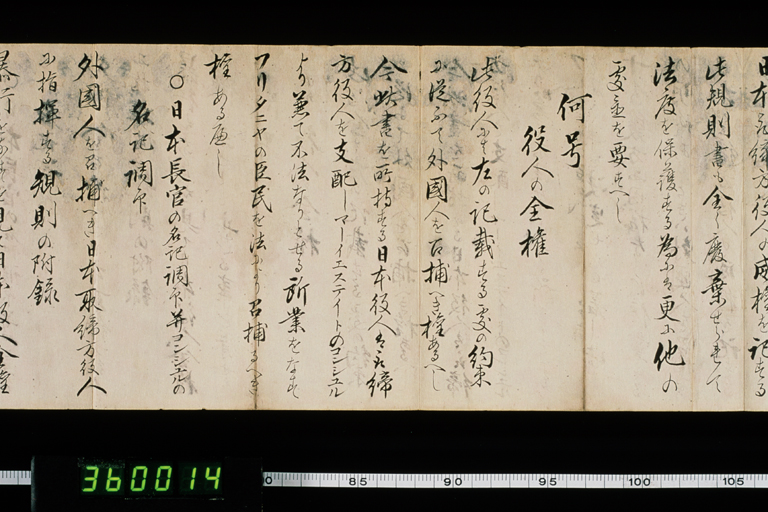 日本取締方役人の成權を記する
此規則書も全く廢棄せられて
法度を保護する為には更に他の
処置を要すへし
何号
役人の全権
此役人は左の記載する処の約束
に従ふて外國人を召捕へき權あるへし
今此書を所持する日本役人は取締
方役人を支配しマーイエステイトのコンシユル
より兼て不法なりとせる所業をなす
フリタニヤの臣民を法により召捕るへき
権あるへし
○日本長官の名記調印并コンシユルの
名記調印
外國人を召捕へき日本取締方役人
に指揮する規則の附録
360014
0
85
90
95
100
105